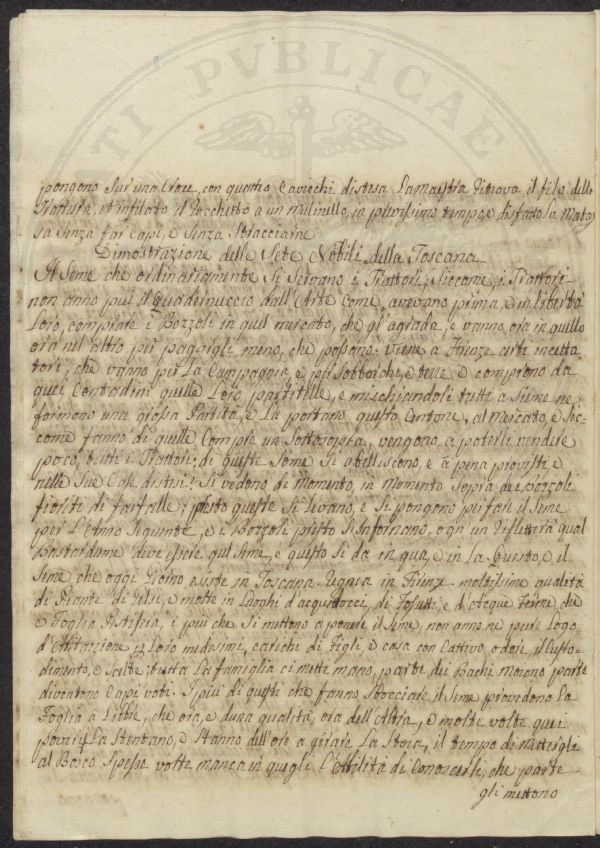 PVBLICAE
pongono Sur'una Croce, con quatro Caviechi distesa La maestra Ritrova il filo della
Trattura, et infilato il Rocchetto a un mulinello, in pocissimo tempo, e disfatto La Matas
sa Senza far Capi, e Senza Stracciare
Dimostrazione delle Sete Nobili della Toscana
Il Seme che ordinariamente Si Servano i Trattori; Siccome, i Trattori
non anno più il Quadernuccio dall'Arte Come, avevano prima, è in libertà
Loro, comprare i Bozzoli in quel mercato, che gl'agrada, e vanno ora in quello
ora nel altro per pagargli meno, che possano. Viene a Firenze certi incetta-
tori, che vanno per La Campagnia, e per Sobborchi, e terre e comprono da
quei Contadini quelle Loro partitelle, e mischiandoli tutti a Sieme ne
formono una grossa Partita, e La portano questo Centone, al Mercato, e Sic-
come fanno di quelle Compre un Sottosopra, vengono, a poterli vendere
poco, tutti i Trattori, di questi Some Si abelliscono, e à pena provisti, e
nelle Sue Case distesi; Si vedono di Momento, in Momento Sopra dei Bozzoli
fioriti di farfalle; presto queste Si Levano, e Si pongono per far il Seme
per L'Anno Seguente, e i Bozzoli presto S'Infornano, ogn'un Rifletterà qual
Bastardame deve essere quel Seme, e questo Si da in qua, e in La. Questo, e il
Seme che oggi Giorno esiste in Toscana. Regnia in Firenze moltissime qualità
di Piante di Gelsi, e molte in Luoghi d'acquidocci, di Fossetti, e d'Acque Ferme, che
e Foglia Pestifera, i più che Si mettono a ponere il Seme, non anno, ne pure Logo
d'Abitazione p Loro medesimi, carichi di Figli, e casa con Cattivo odore, il Custo-
dimento, e Scalte; tutta La famiglia ci mette mano, parte dei Bachi morono parte
diventono Capi voti. I più di questi che fanno Sbocciare il Seme provedono La
Foglia à Libbre, che ora, e d'una qualità, ora dell'Altra, e molte volte quei
poveri La Stentano, e Stanno dell'ore a girare La Stoia, il tempo di Mettergli
al Bosco Spesse volte manca in quegli L'Abilità di Conoscerli, che parte
gli mettono